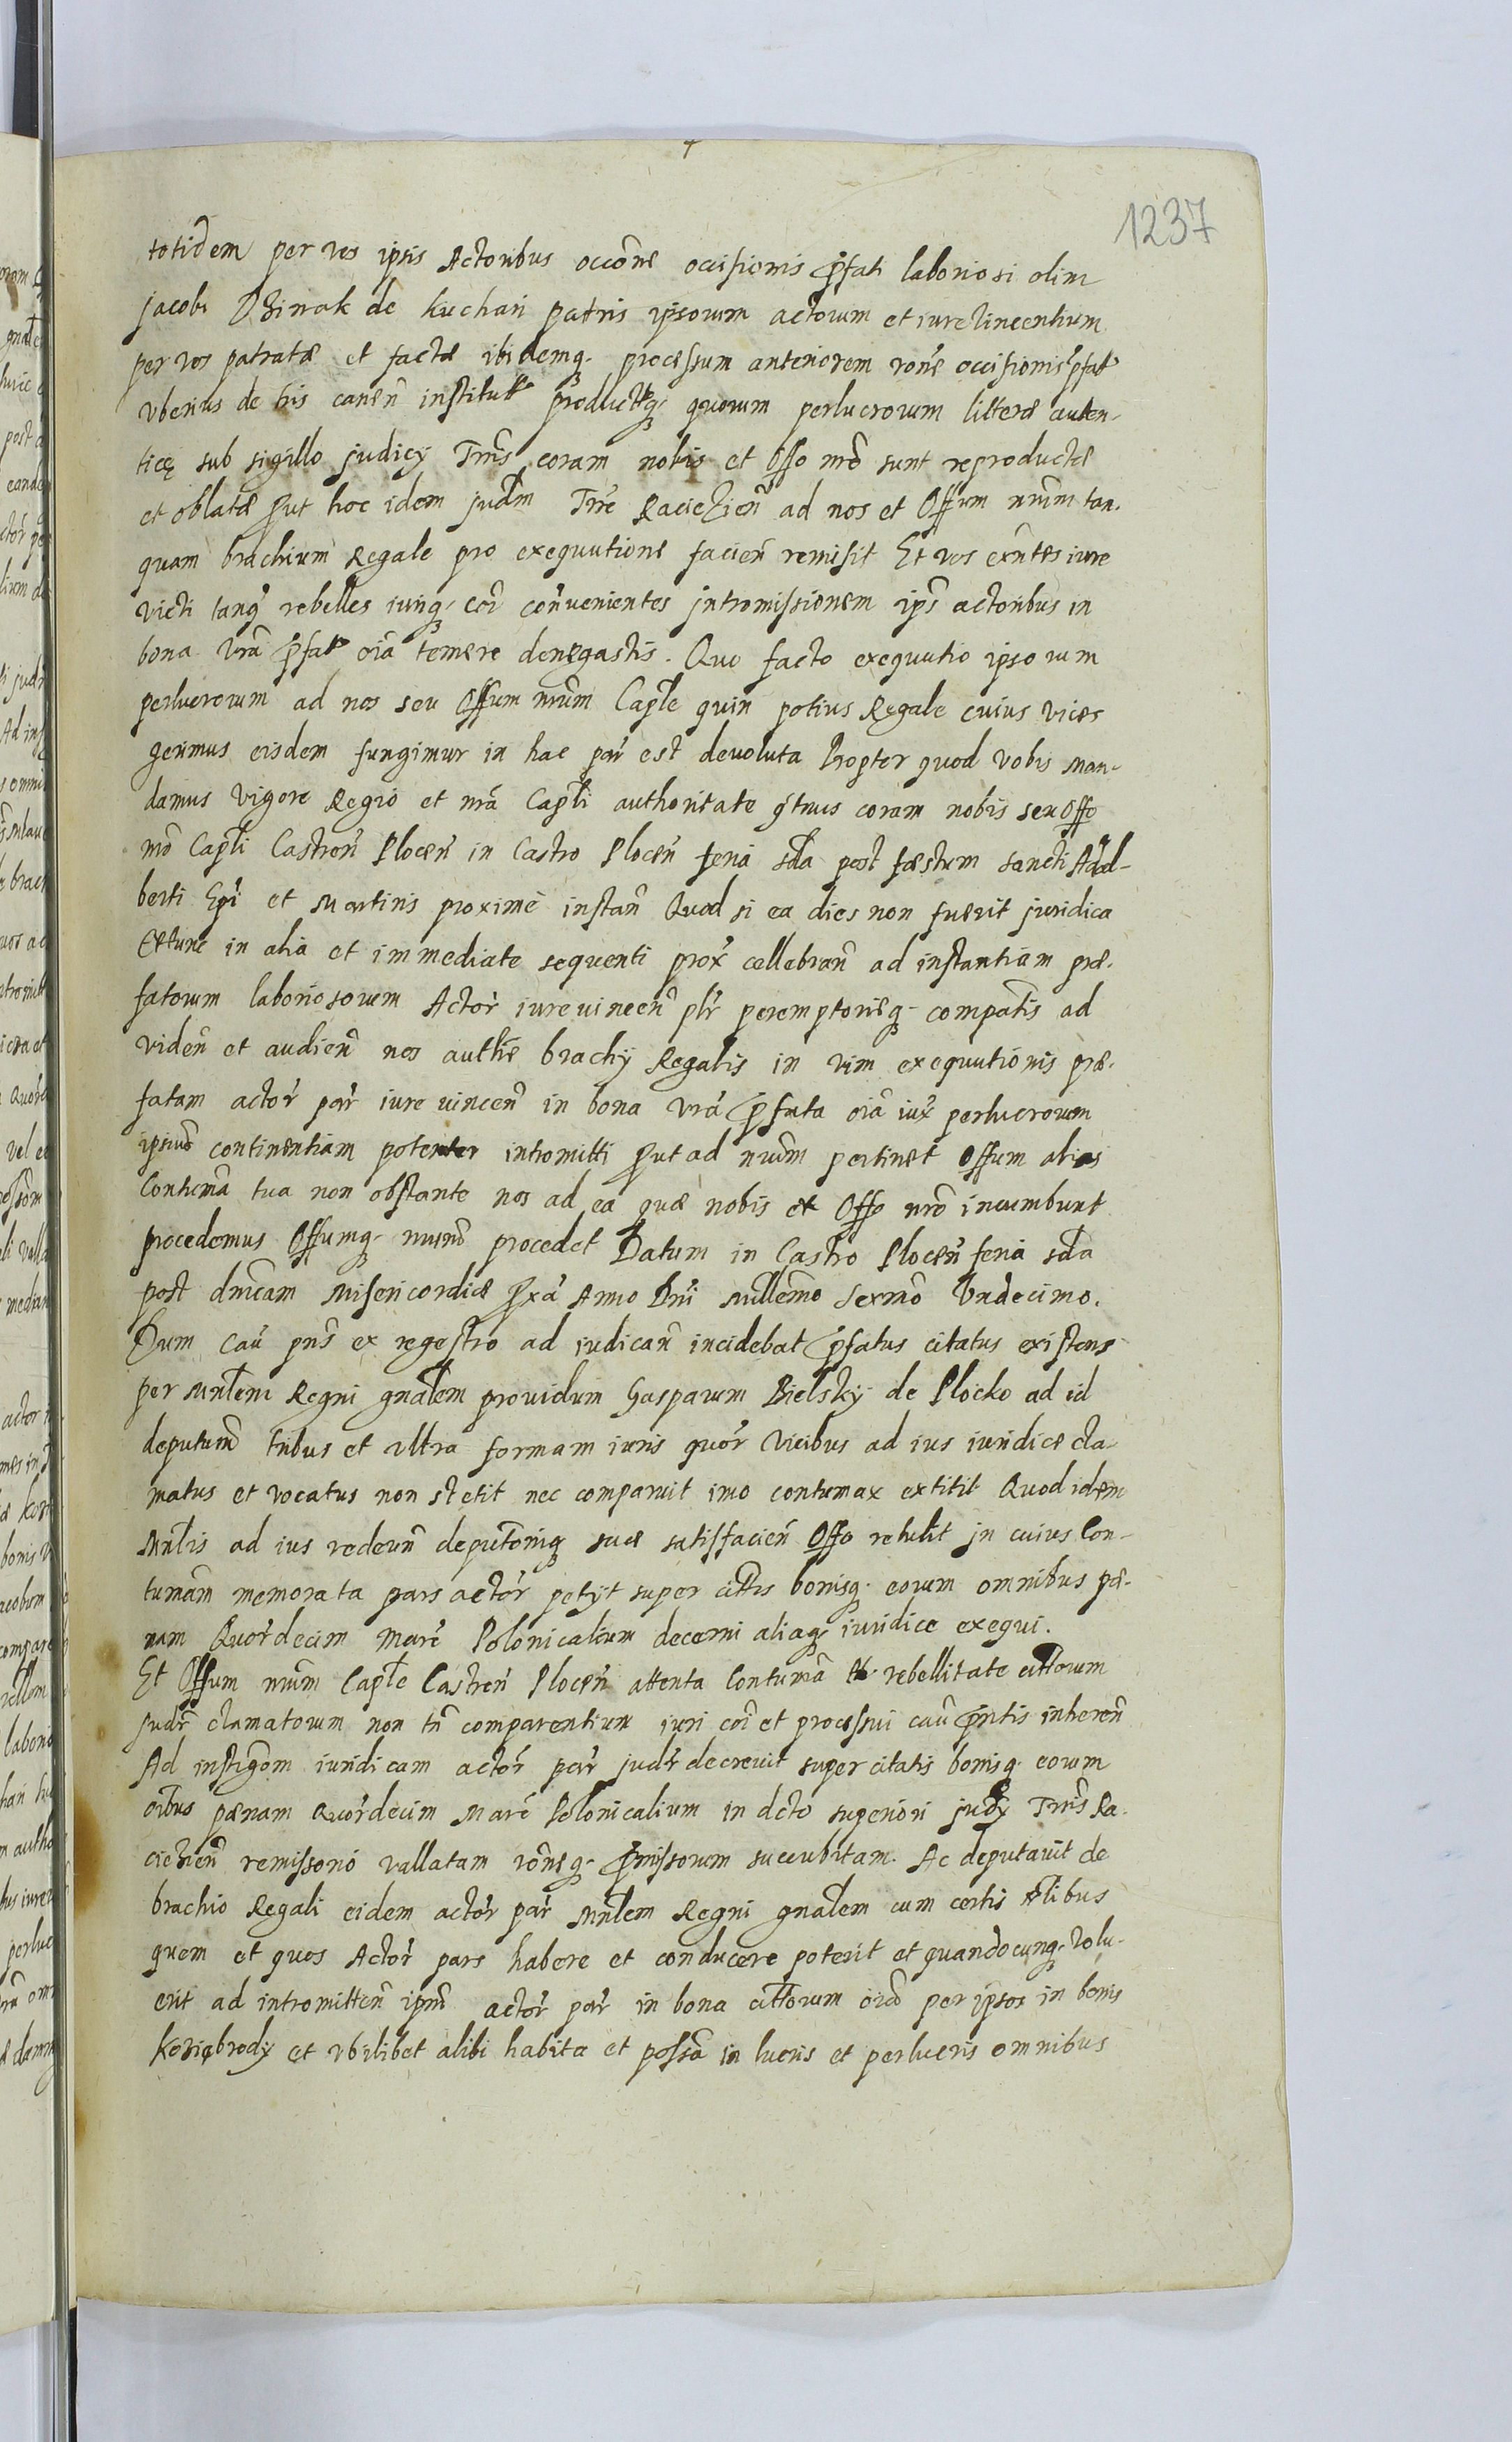 1237
totidem per vos ipsis Actoribus occōne occisionis p̄fati laboriosi olim
jacobi Dzinak de Kuchari patris ipsorum actorum et iurevincentium
per vos patratæ et factæ ibidemq₃ processum anteriorem rōne occisionis p̄fat
vberius de his canen̄ institut productq₃ quorum perlucrorum litteræ auten-
ticę sub sigillo judicÿ Trr̄is coram nobis et Offo nrō sunt reproductæ
et oblatæ p̄ut hoc idem judm̄ Trrē Raciezień ad nos et Offum nrūm tan-
quam brachium Regale pro exequutione facień remisit Et vos exn̄tes iure
victi tanq̄ rebelles iuriq₃ coī contrvenientes intromissionem ips̄ actoribus in
bona vrā p̄fat oīa temere denegastis. Quo facto exequutio ipsorum
perlucrorum ad nos seu Offum nrūm Capl̄e quin potius Regale cuius vices
gerimus eisdem fungimur in hac par̄ est devoluta Propter quod vobis man-
damus vigore Regio et nrā Capl̄i authoritate q̄tnus coram nobis seu Offo
nrō Capl̄i Castren̄ Plocen̄ in Castro Plocen̄ feria sd̄a post fæstum sancti Adal-
berti Ep̄i et Martiris proximè instan̄ Quod si ea dies non fuerit juridica
Extunc in alia et immediate sequenti prox̄ cellebran̄ ad instantiam præ-
fatorum laboriosorum Actor̄ iurevincen̄ pl̄r peremptorieq₃ compatis ad
viden̄ et audien̄ nos auth̄e brachÿ Regalis in vim exequutionis præ-
fatam actor̄ par̄ iure vincen̄ in bona vrā p̄fata oīa iux̄ perlucrorum
ipsius continentiam potenter intromitti p̄ut ad nrūm pertinet Offum alias
Contumā tua non obstante nos ad ea quæ nobis et Offo nrō incumbunt
procedemus Offumq₃ nrūm procedet Datum in Castro Plocen̄ feria sd̄a
post dn̄icam Misericordiæ p̄xā Anno Dn̄i millēmo sexmō Vndecimo.
Dum cau̇ pn̄s ex regestro ad iudican̄ incidebat p̄fatus citatus existens
per Mnl̄em Regni gnāłem prouidum Gasparum Bielskÿ de Płocko ad id
deputum̄ tribus et vltra formam iuris quor̄ vicibus ad ius iuridicæ cla-
matus et vocatus non stetit nec comparuit imo contumax extitit Quod idem
Mnl̄is ad ius redeun̄ deputōniq₃ suæ satisfacien̄ Offo retulit in cuius Con-
tumām memorata pars actor̄ petÿt super cittis bonisq₃ eorum omnibus pæ-
nam Quor̄decim Marc̄ Polonicalium decerni aliaq₃ iuridice exequi.
Et Offum nrūm Capl̄e Castren̄ Plocen̄ attenta Contumā et rebellitate cittorum
judr̄ clamatorum non tn̄ comparentium iuri coī et processui cau̇ p̄ntis inheren̄
Ad instigōm iuridicam actor̄ par̄ judr̄ decreuit super citatis bonisq₃ eorum
oībus pænam Quor̄decim Marc̄ Polonicalium in dcto superiori judÿ Trr̄is Ra-
ciezien̄ remissorio vallatam rōneq₃ p̄missorum succubitam. Ac deputauit de
brachio Regali eidem actor̄ par̄ Mnl̄em Regni gnāłem cum certis nl̄ibus
quem et quos Actor̄ pars habere et conducere poterit et quandocunq₃ Volu-
erit ad intromitten̄ ipm̄ actor̄ par̄ in bona cittorum oīa per ipsos in bonis
Koziebrody et vbilibet alibi habita et possā in lucris et perlucris omnibus